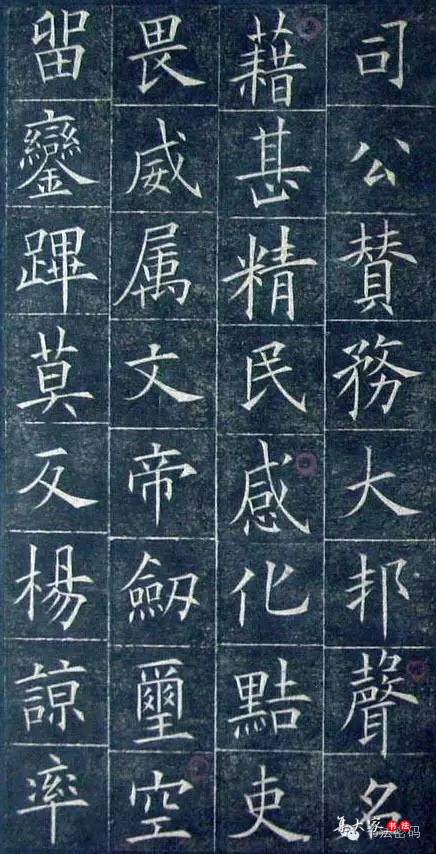 司公賛務大邦聲名
藉甚精民感化黠吏
畏威属文帝劒璽空
留鑾蹕莫反楊諒率
集大家书法
书法密码